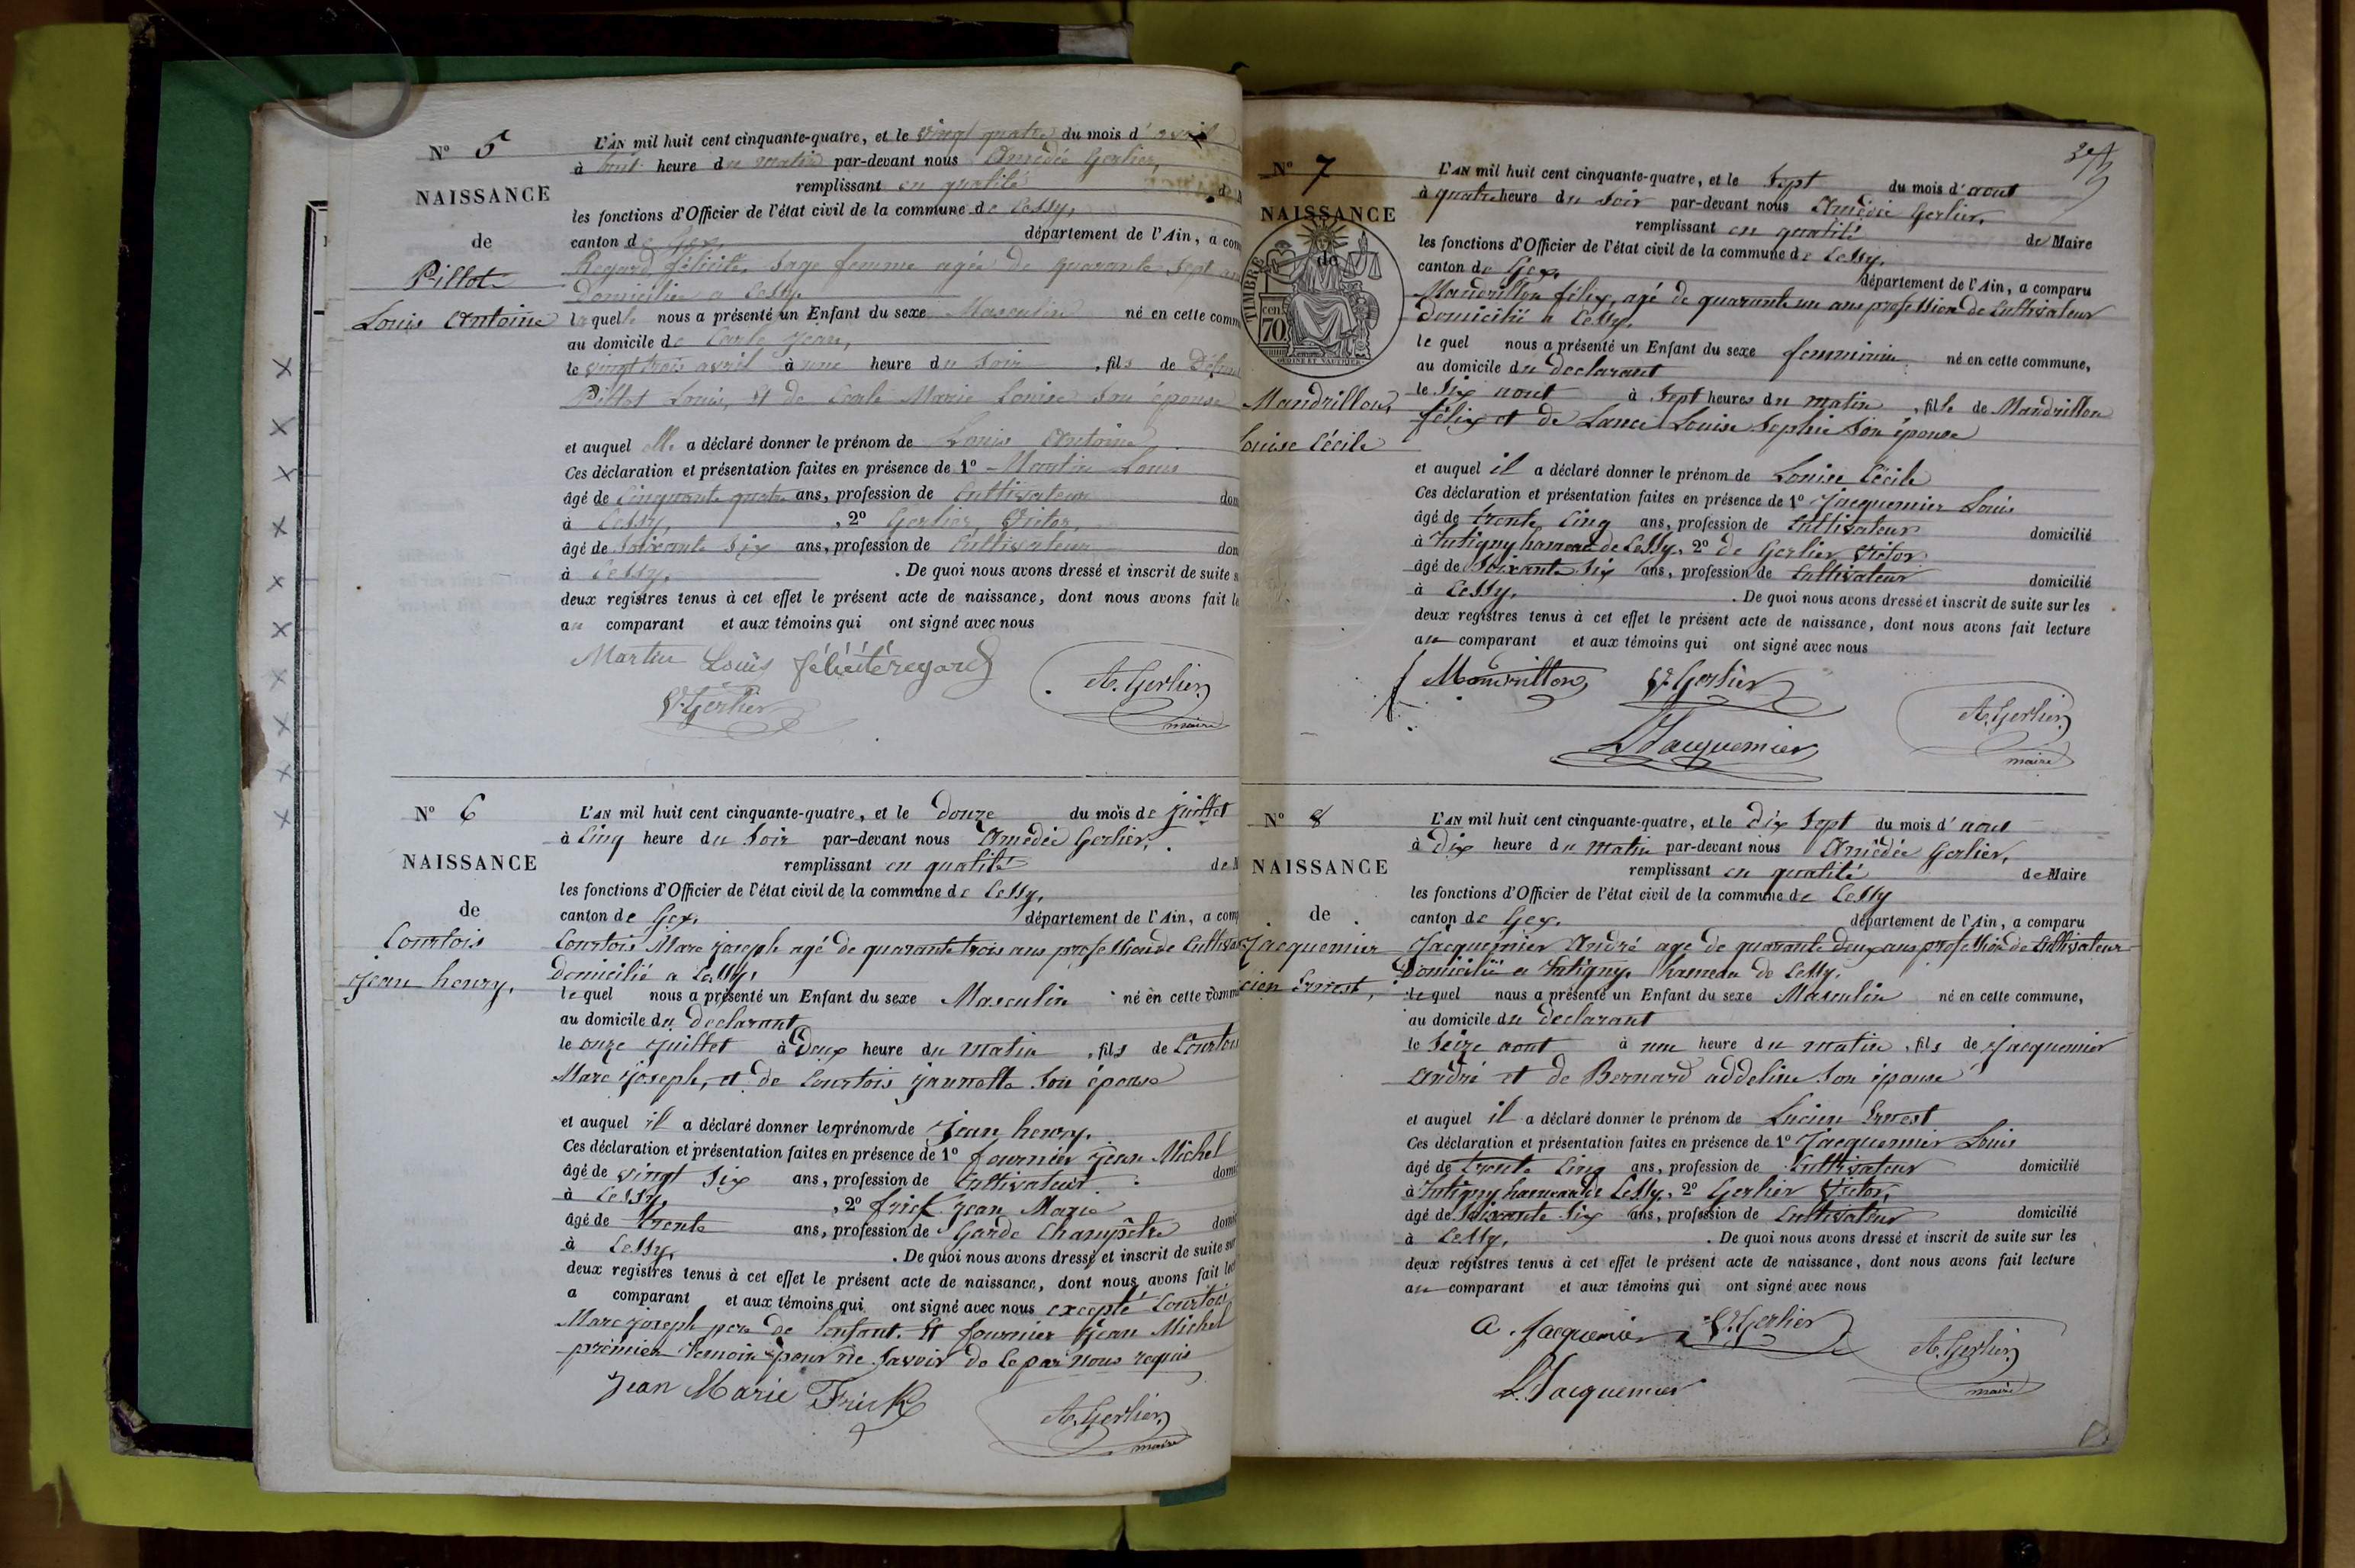 N° 5
NAISSANCE
de
Pillot
Louis Antoine
L'AN mil huit cent cinquante-quatre, et le vingt quatre du mois d'avril
à huit heure du matin par-devant nous Amédée Gerlier,
remplissant en qualité
les fonctions d'Officier de l'état civil de la commune de Cessy,
canton de Gex, département de l'Ain, a com
Regard félicité, Sage femme agée de quarante Sept
Domiciliée a Cessy
laquelle nous a présenté un Enfant du sexe Masculin né en cette comm
au domicile de Carle Jean,
le vingt trois avril à une heure du Soir, fils de Défunt
Pillot Louis, Et de Carle Marie Louise Son épouse
et auquel elle a déclaré donner le prénom de Louis Antoine
Ces déclaration et présentation faites en présence de 1° Martin Louis
âgé de Cinquante quatre ans, profession de Cultivateur dom
à Cessy, , 2° Gerlier, Victor,
âgé de Soixante Six ans, profession de Cultivateur dom
à Cessy, . De quoi nous avons dressé et inscrit de suite s
deux registres tenus à cet effet le présent acte de naissance, dont nous avons fait le
au comparant et aux témoins qui ont signé avec nous
Martin Louis félicité regard
V. Gerlier A. Gerlier
maire
N° 6
NAISSANCE
de
Courtois
Jean henry,
L'AN mil huit cent cinquante-quatre, et le Douze du mois de juillet
à Cinq heure du Soir par-devant nous Amédée Gerlier,
remplissant en qualité de M
les fonctions d'Officier de l'état civil de la commune de Cessy,
canton de Gex, département de l'Ain, a comp
Courtois Marc joseph agé de quarante trois ans profession de Cultivat
Domicilié a Cessy,
lequel nous a présenté un Enfant du sexe Masculin né en cette comm
au domicile du Declarant
le onze juillet à Deux heure du matin, fils de Courtois
Marc joseph, et de Courtois jaunette Son épouse
et auquel il a déclaré donner le prénom de Jean henry,
Ces déclaration et présentation faites en présence de 1° fournier jean Michel
âgé de vingt Six ans, profession de Cultivateur domi
à Cessy, , 2° frick jean Marie
âgé de trente ans, profession de Garde Champêtre domi
à Cessy, . De quoi nous avons dressé et inscrit de suite sur
deux registres tenus à cet effet le présent acte de naissance, dont nous avons fait lect
a comparant et aux témoins qui ont signé avec nous excepté Courtois
Marc joseph pere de lenfant. Et fournier jean Michel
premier temoin pour ne Savoir de Ce par nous requis
Jean Marie Frick
A. Gerlier
maire
N° 7
NAISSANCE
de
TIMBRE
cent
70
Mandrillon,
Louise Cécile
L'AN mil huit cent cinquante-quatre, et le Sept du mois d'aout
à quatre heure du Soir par-devant nous Amédée Gerlier,
remplissant en qualité de Maire
les fonctions d'Officier de l'état civil de la commune de Cessy,
canton de Gex, département de l'Ain, a comparu
Mandrillon félix, agé de quarante un ans profession de Cultivateur
Domicilié a Cessy,
lequel nous a présenté un Enfant du sexe femminin né en cette commune,
au domicile du declarant
le Six aout à Sept heures du matin, fille de Mandrillon
félix et de Lancel Louise Sophie Son épouse
et auquel il a déclaré donner le prénom de Louise Cécile
Ces déclaration et présentation faites en présence de 1° Jacquemier Louis
âgé de trente Cinq ans, profession de Cultivateur domicilié
à Tutigny hameau de Cessy, 2° de Gerlier Victor
âgé de Soixante Six ans, profession de Cultivateur domicilié
à Cessy, . De quoi nous avons dressé et inscrit de suite sur les
deux registres tenus à cet effet le présent acte de naissance, dont nous avons fait lecture
au comparant et aux témoins qui ont signé avec nous
f Mandrillon V. Gerlier
L Jacquemier A. Gerlier
maire
N° 8
NAISSANCE
de
Jacquemier
cien Ernest,
L'AN mil huit cent cinquante-quatre, et le Dix Sept du mois d'aout
à Dix heure du matin par-devant nous Amédée Gerlier,
remplissant en qualité de Maire
les fonctions d'Officier de l'état civil de la commune de Cessy
canton de Gex, département de l'Ain, a comparu
Jacquemier André age de quarante deux ans profession de Cultivateur
Domicilié a Tutigny, hameau de Cessy,
lequel nous a présenté un Enfant du sexe Masculin né en cette commune,
au domicile du declarant
le Seize aout à une heure du matin, fils de Jacquemier
André et de Bernard addeline Son épouse
et auquel il a déclaré donner le prénom de Lucien Ernest
Ces déclaration et présentation faites en présence de 1° Jacquemier Louis
âgé de trente Cinq ans, profession de Cultivateur domicilié
à Tutigny hameau de Cessy, 2° Gerlier Victor,
âgé de Soixante Six ans, profession de Cultivateur domicilié
à Cessy, . De quoi nous avons dressé et inscrit de suite sur les
deux registres tenus à cet effet le présent acte de naissance, dont nous avons fait lecture
au comparant et aux témoins qui ont signé avec nous
A. Jacquemier V. Gerlier
L. Jacquemier A. Gerlier
maire